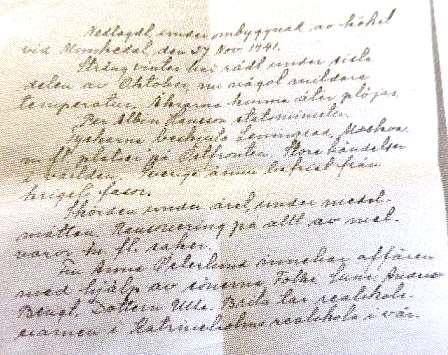 Nedlagd under ombyggnad av köket
vid Monhedal, den 27 Nov 1941.
Sträng vinter har rådt under sista
delen av Oktober, nu något mildare
temperatur. Åkrarna kunna åter plöjas.
Per Albin Hansson statsminister.
Tyskarna beskjuta Leningrad, Moskva
m fl platser på Ostfronten. Stora händelser
i världen. Sverige ännu befriat från
krigets fasor.
Skörden under året, under medel-
måttan. Ransonering på allt av mat-
varor m. fl. saker.
Fru Anna Österlund innehar affären
med hjälp av sönerna Folke
Bengt. Dottern Ulla. Brita tar realskole-
examen i Katrineholms realskola i vår.